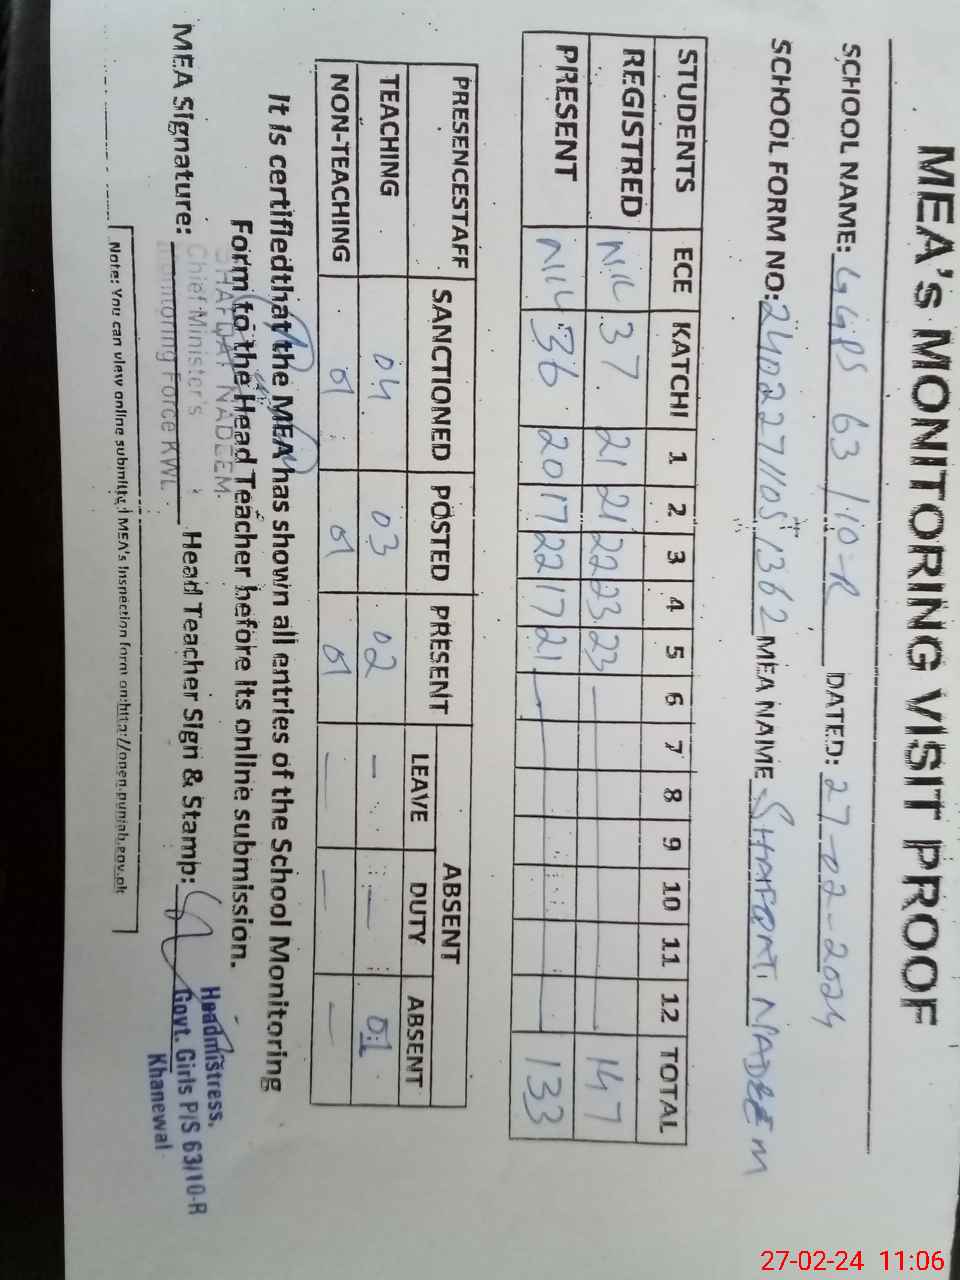 MEA's MONITORING VISIT PROOF
SCHOOL NAME: GGPS 63/10-R DATED: 27-02-2024
SCHOOL FORM NO: 24022711051362 MEA NAME SHAFQAT NADEEM
STUDENTS ECE KATCHI 1 2 3 4 5 6 7 8 9 10 11 12 TOTAL
REGISTRED NIL 37 21 21 22 23 23 147
PRESENT NIL 36 20 17 22 17 21 133
PRESENCESTAFF SANCTIONED POSTED PRESENT ABSENT
LEAVE DUTY ABSENT
TEACHING 04 03 02 - - 01
NON-TEACHING 01 01 01 - - -
It is certifiedthat the MEA has shown all entries of the School Monitoring
Form to the Head Teacher before its online submission.
SHAFQAT NADEEM
Chief Minister's
Monitoring Force KWL.
MEA Signature: Head Teacher Sign & Stamp:
Headmistress,
Govt. Girls P/S 63/10-R
Khanewal
Note: You can view online submitted MEA's Inspection form on:http://open.punjab.gov.pk
27-02-24 11:06